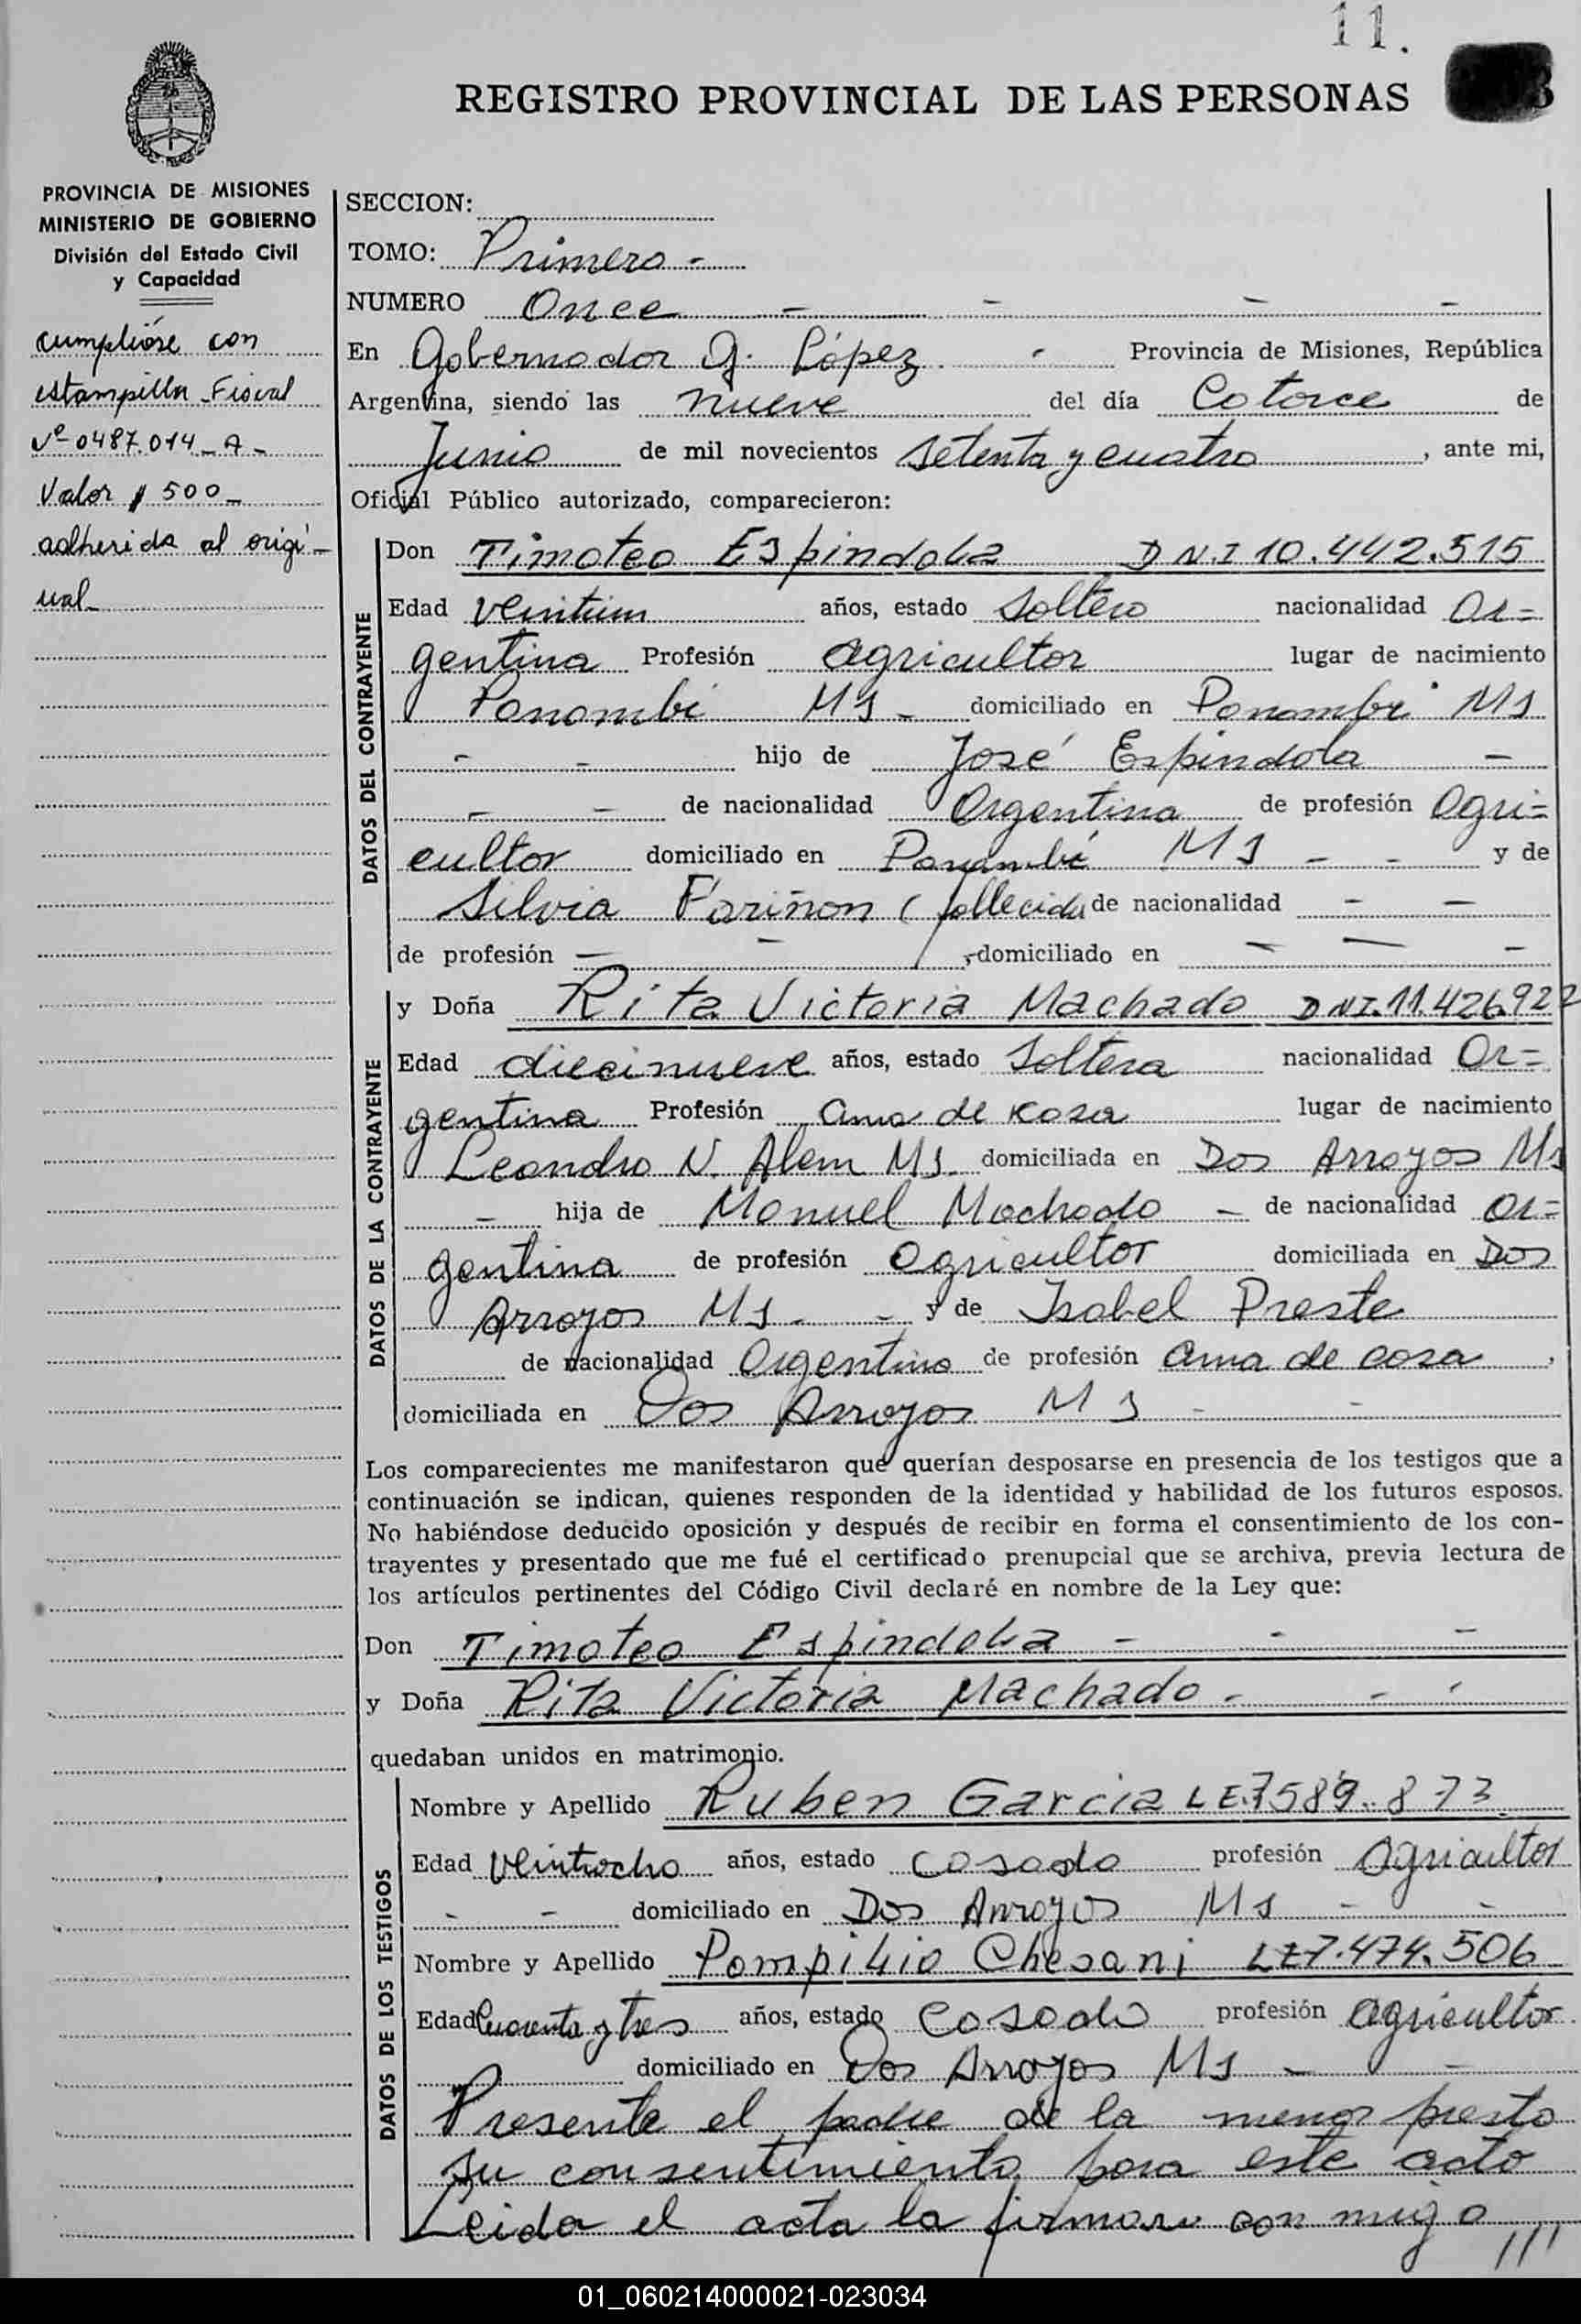 11.
REGISTRO PROVINCIAL DE LAS PERSONAS
PROVINCIA DE MISIONES
MINISTERIO DE GOBIERNO
División del Estado Civil
y Capacidad
cumplióse con
estampilla Fiscal
Nº 0487.014 - A -
Valor $ 500 -
adherida al origi-
nal
SECCION:
TOMO: Primero -
NUMERO Once - - - -
En Gobernador J. López - Provincia de Misiones, República
Argentina, siendo las nueve del día Catorce de
Junio de mil novecientos setenta y cuatro, ante mi,
Oficial Público autorizado, comparecieron:
DATOS DEL CONTRAYENTE
Don Timoteo Espindola DNI 10.442.515
Edad veintiun años, estado Soltero nacionalidad Ar=
gentina Profesión agricultor lugar de nacimiento
Panambí Ms - domiciliado en Panambí Ms
- - hijo de José Espindola -
- - de nacionalidad Argentina de profesión Agri=
cultor domiciliado en Panambí Ms - - y de
Silvia Fariñon (fallecida de nacionalidad - -
de profesión - - , domiciliado en - - -
DATOS DE LA CONTRAYENTE
y Doña Rita Victoria Machado DNI. 11.426.922
Edad diecinueve años, estado Soltera nacionalidad Ar=
gentina Profesión ama de kasa lugar de nacimiento
Leandro N. Alem Ms. domiciliada en Dos Arroyos Ms
- hija de Manuel Machado - de nacionalidad Ar=
gentina de profesión Agricultor domiciliada en Dos
Arroyos Ms - - y de Isabel Preste
de nacionalidad Argentina de profesión ama de casa ,
domiciliada en Dos Arroyos Ms - -
Los comparecientes me manifestaron que querían desposarse en presencia de los testigos que a
continuación se indican, quienes responden de la identidad y habilidad de los futuros esposos.
No habiéndose deducido oposición y después de recibir en forma el consentimiento de los con-
trayentes y presentado que me fué el certificado prenupcial que se archiva, previa lectura de
los artículos pertinentes del Código Civil declaré en nombre de la Ley que:
Don Timoteo Espindola - - -
y Doña Rita Victoria Machado - - -
quedaban unidos en matrimonio.
DATOS DE LOS TESTIGOS
Nombre y Apellido Ruben Garcia LE.7589.873
Edad Veintiocho años, estado casado profesión Agricultor
- - domiciliado en Dos Arroyos Ms - -
Nombre y Apellido Pompilio Chesani LE7.474.506
Edad Cuarenta y tres años, estado Casado profesión agricultor
domiciliado en Dos Arroyos Ms - -
Presente el padre de la menor presta
su consentimiento para este acto
Leida el acta la firman con migo ///
01_060214000021-023034